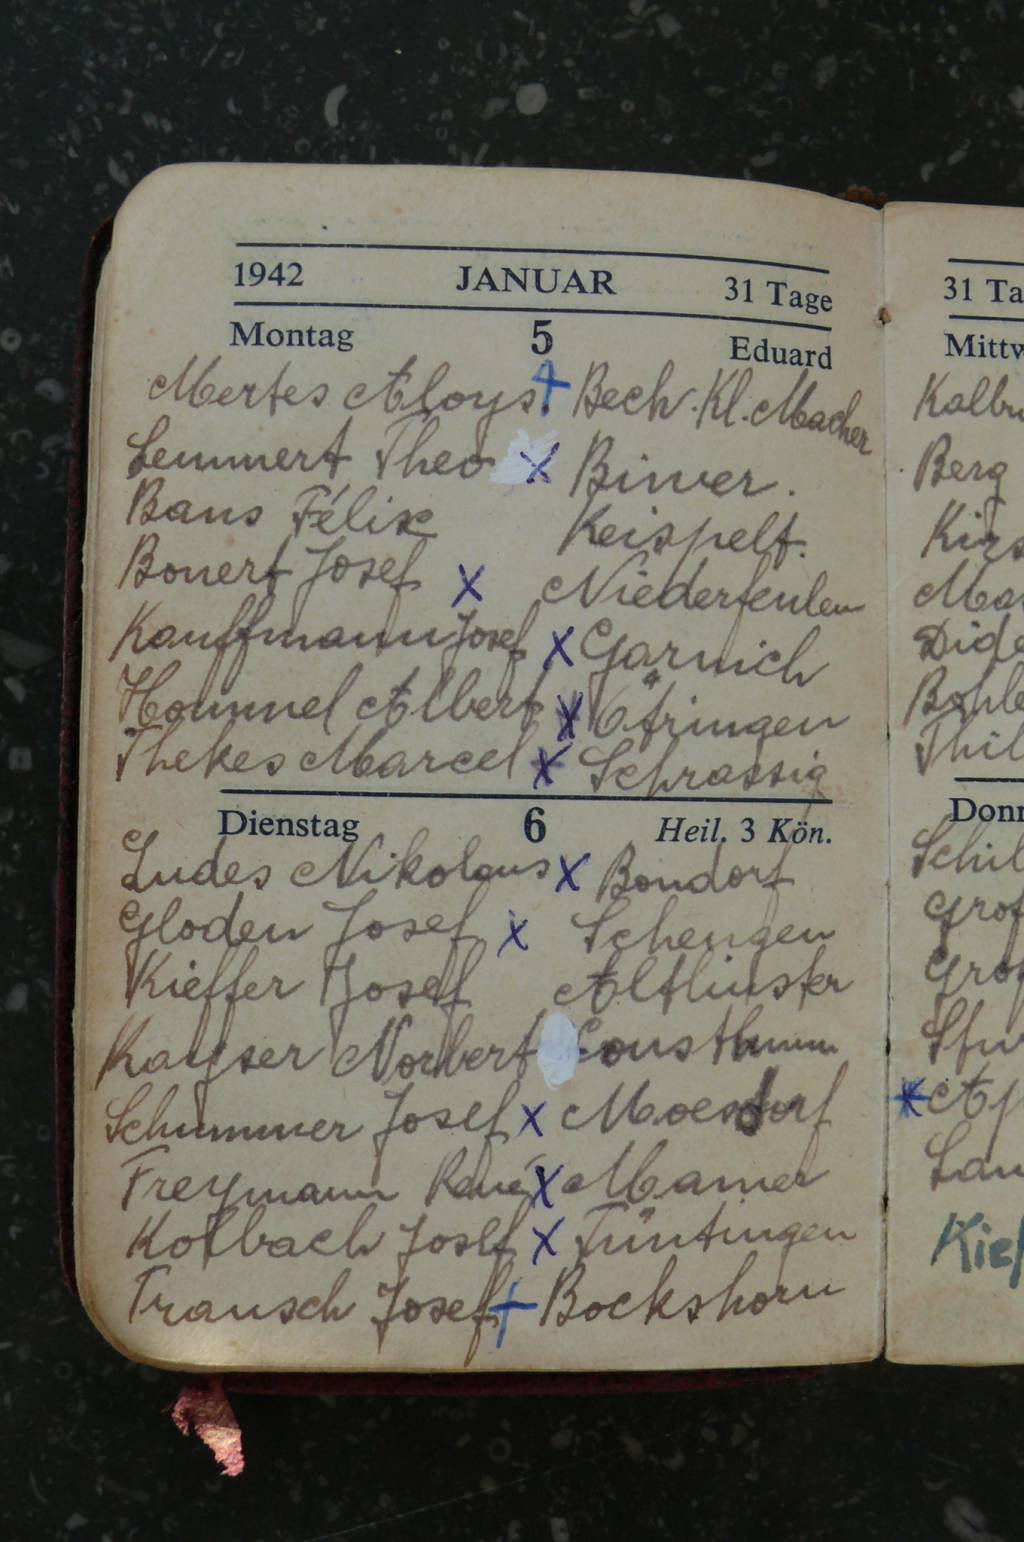 1942 JANUAR 31 Tage
Montag 5 Eduard
Mertes Aloys † Bech. Kl. Macher
Lemmert Theo x Biwer.
Baus Félix Keispelt.
Bonert Josef x Niederfeulen
Kauffmann Josef x Garnich
Hommel Albert x Ötringen
Thekes Marcel x Schrassig
Dienstag 6 Heil. 3 Kön.
Ludes Nikolaus x Bondorf
Gloden Josef x Schengen
Kieffer Josef Altlinster
Kayser Norbert Consthum
Schummer Josef x Moesdorf
Freymann René x Mamer
Kolbach Josef x Tüntingen
Trausch Josef † Bockshorn
31 Ta
Mittw
Kalbr
Berg
Kirs
Mar
Dide
Bohle
Thil
Donn
Schil
Grof
Grof
Lau
Kief